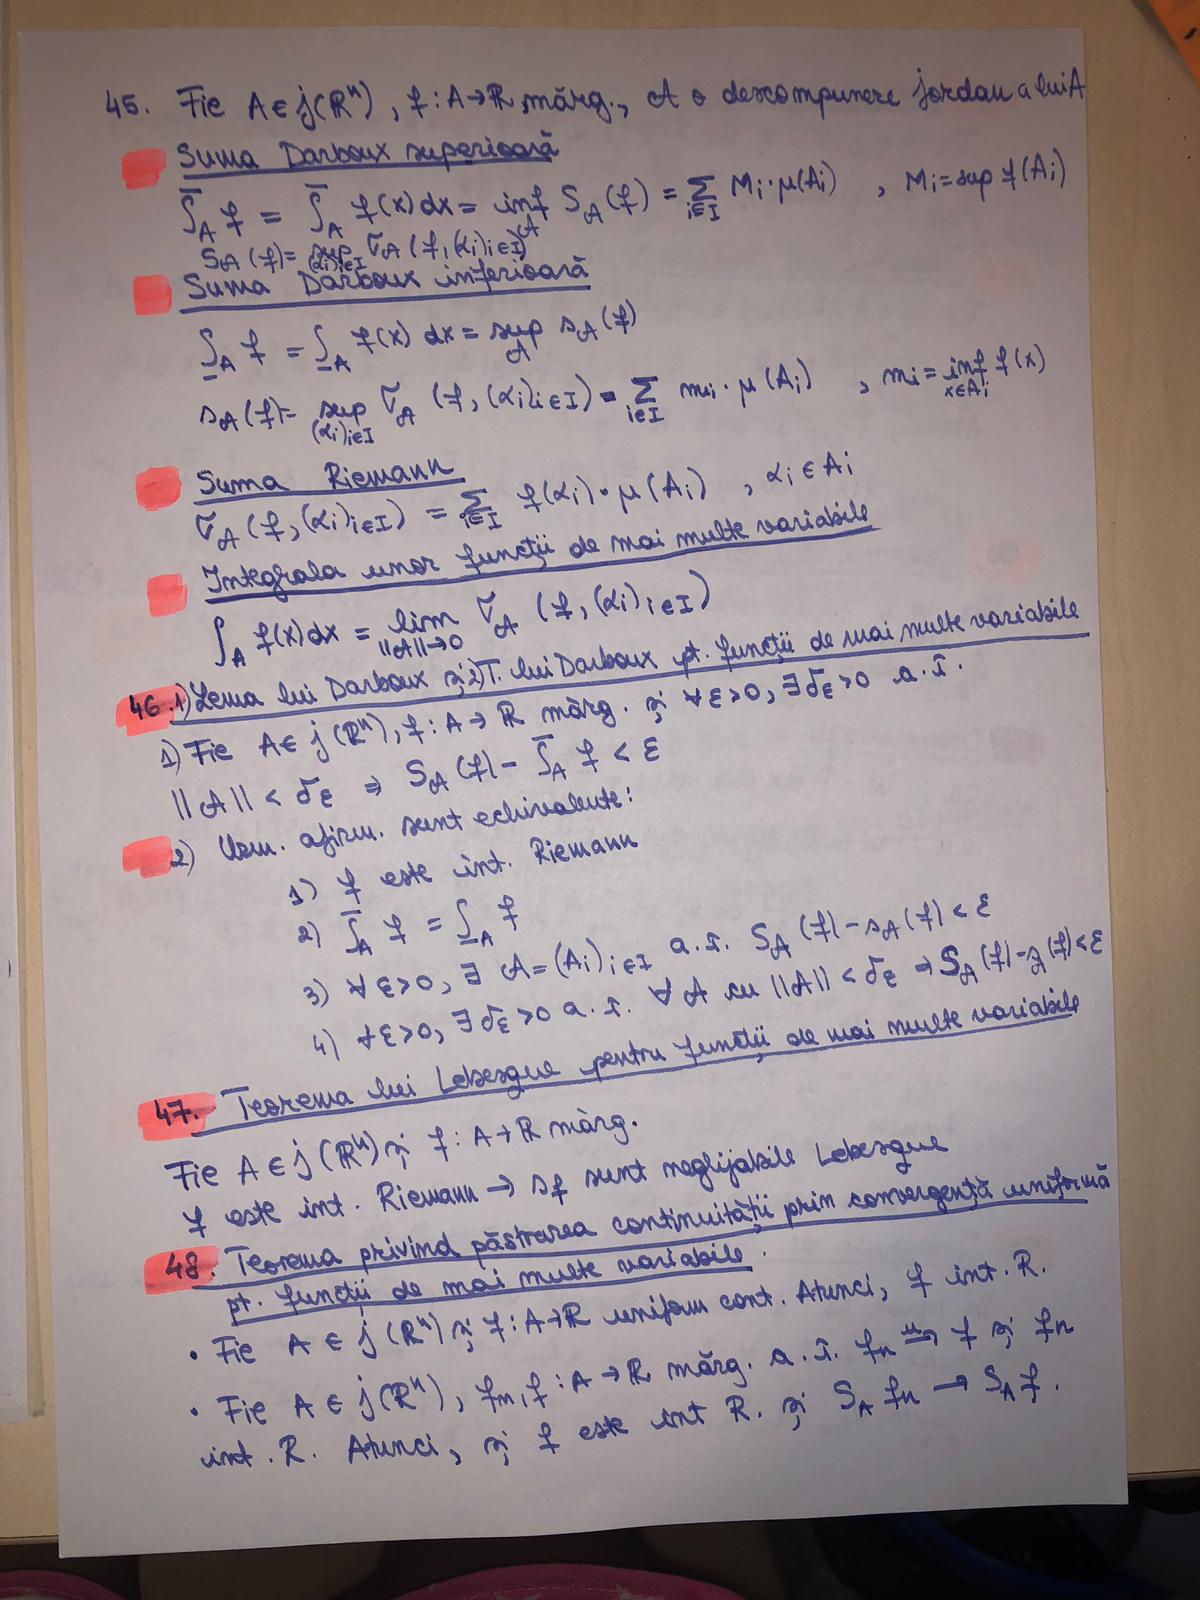 45. Fie A ∈ j(ℝⁿ), f : A → ℝ mărg., 𝒜 o descompunere jordan a lui A
Suma Darboux superioară
∫̄_A f = ∫̄_A f(x) dx = inf_𝒜 S_𝒜(f) = Σ_{i∈I} M_i · μ(A_i) , M_i = sup f(A_i)
S_𝒜(f) = sup_{(α_i)_{i∈I}} σ_𝒜(f, (α_i)_{i∈I})
Suma Darboux inferioară
∫̲_A f = ∫̲_A f(x) dx = sup_𝒜 s_𝒜(f)
s_𝒜(f) = sup_{(α_i)_{i∈I}} σ_𝒜(f, (α_i)_{i∈I}) = Σ_{i∈I} m_i · μ(A_i) , m_i = inf_{x∈A_i} f(x)
Suma Riemann
σ_𝒜(f, (α_i)_{i∈I}) = Σ_{i∈I} f(α_i) · μ(A_i) , α_i ∈ A_i
Integrala unor funcții de mai multe variabile
∫_A f(x) dx = lim_{||𝒜||→0} σ_𝒜(f, (α_i)_{i∈I})
46. 1) Lema lui Darboux și 2) T. lui Darboux pt. funcții de mai multe variabile
1) Fie A ∈ j(ℝⁿ), f : A → ℝ mărg. și ∀ε>0, ∃δ_ε>0 a.î.
||𝒜|| < δ_ε ⇒ S_𝒜(f) - ∫̄_A f < ε
2) Urm. afirm. sunt echivalente:
1) f este int. Riemann
2) ∫̄_A f = ∫̲_A f
3) ∀ε>0, ∃ 𝒜=(A_i)_{i∈I} a.î. S_𝒜(f) - s_𝒜(f) < ε
4) ∀ε>0, ∃δ_ε>0 a.î. ∀𝒜 cu ||𝒜|| < δ_ε ⇒ S_𝒜(f) - s_𝒜(f) < ε
47. Teorema lui Lebesgue pentru funcții de mai multe variabile
Fie A ∈ j(ℝⁿ) și f : A → ℝ mărg.
f este int. Riemann → Df sunt neglijabile Lebesgue
48. Teorema privind păstrarea continuității prin convergență uniformă
pt. funcții de mai multe variabile.
• Fie A ∈ j(ℝⁿ) și f : A → ℝ uniform cont. Atunci, f int. R.
• Fie A ∈ j(ℝⁿ), f_n, f : A → ℝ mărg. a.î. f_n ⇒ᵘ f și f_n
int. R. Atunci, și f este int R. și ∫_A f_n → ∫_A f.